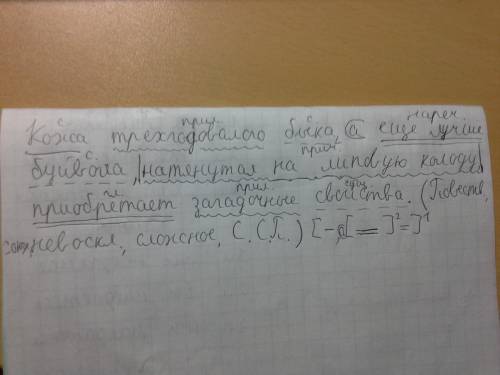 с. прил. с. нареч.
Кожа трехгодовалого быка, а еще лучше
с. прич. прил.
буйвола, натянутая на липовую колоду,
гл. прил. сущ.
приобретает загадочные свойства. (Повеств.,
невоскл., сложное, С.С.П.) [- а[=]²=]¹